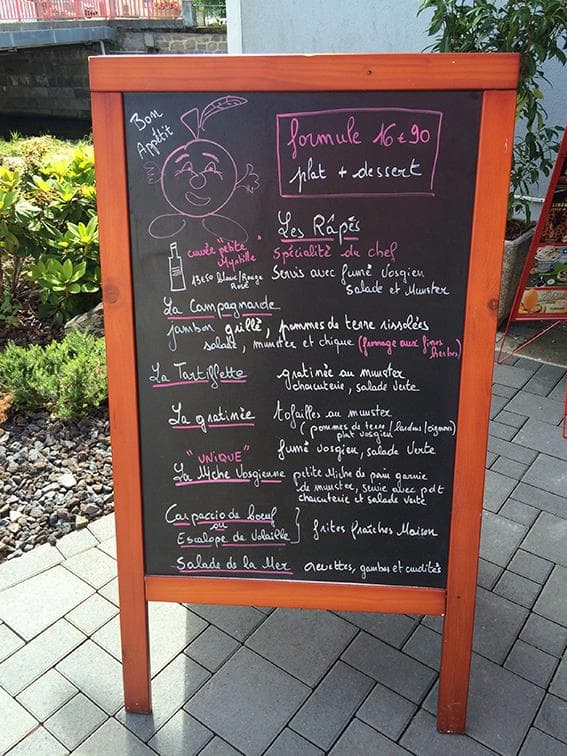 Bon
Appétit
formule 16€90
plat + dessert
Les Râpés
cuvée "petite
Myrtille"
13€50 blanc/Rouge
Rosé
Spécialité du chef
Servis avec fumé Vosgien
Salade et Munster
La Campagnarde
jambon grillé, pommes de terre rissolées
salade, munster et chique (fromage aux fines
herbes)
La Tartiflette
gratinée au munster
charcuterie, salade verte
La gratinée
tofailles au munster
(pommes de terre/lardons/oignons)
plat vosgien
fumé vosgien, salade verte
"UNIQUE"
La Miche Vosgienne
petite Miche de pain garnie
de munster, servie avec pdt
charcuterie et salade verte
Carpaccio de boeuf
ou
Escalope de Volaille
frites fraîches Maison
Salade de la Mer
crevettes, gambas et crudités